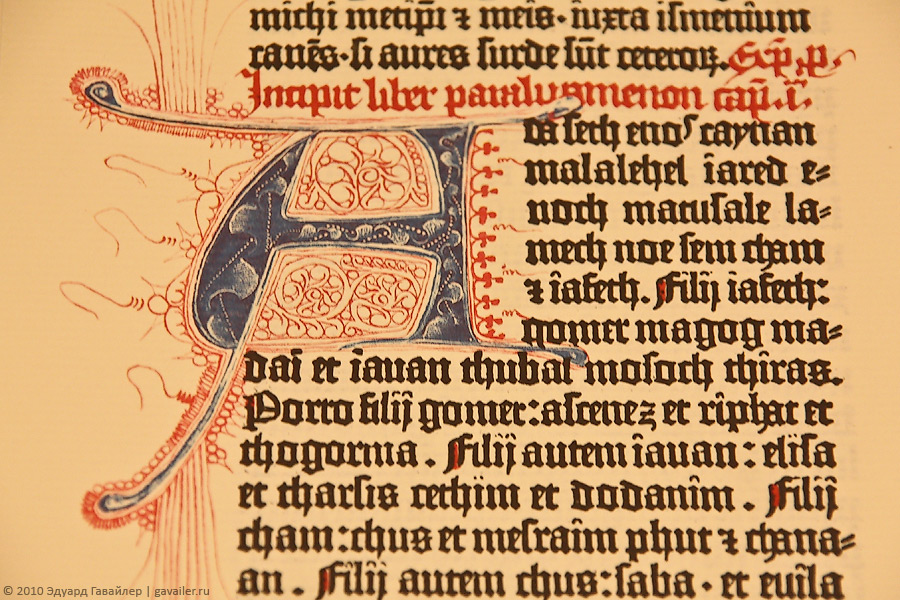 michi metip̄i ⁊ meis· iuxta ismenium
canēs· si aures surde sūt ceterorꝝ. Exp̄. p̄.
Incipit liber paralypmenon cap̄. ī.
A
da seth enos caynan
malalehel iared e-
noch matusale la-
mech noe sem cham
⁊ iafeth. Filij iafeth:
gomer magog ma-
dai et iavan thubal mosoch thiras.
Porro filij gomer: ascenez et riphat et
thogorma. Filij autem iavan: elisa
et tharsis cethim et dodanim. Filij
cham: chus et mesraim phut ⁊ chana-
an. Filij autem chus: saba· et evila
© 2010 Эдуард Гавайлер | gavailer.ru